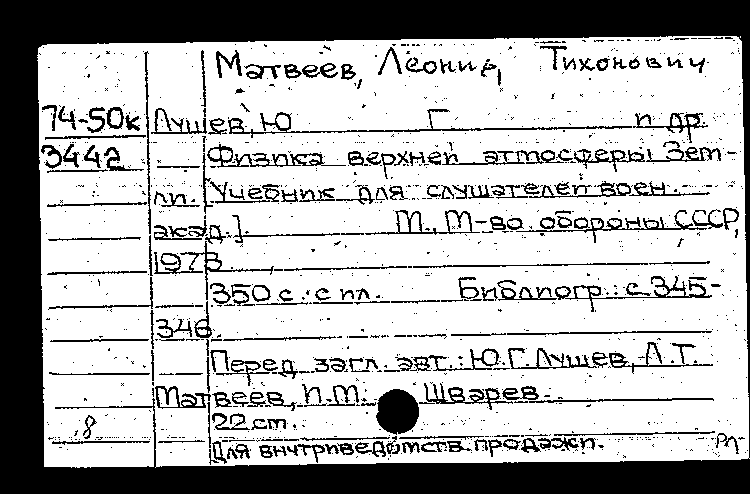 Матвеев, Леонид Тихонович
74-50к Лушев, Ю Г. и др.
3442 Физика верхней атмосферы Зем-
ли. [Учебник для слушателей воен.
акад.]. М., М-во обороны СССР,
1973.
350 с. с ил. Библиогр.: с. 345-
346.
Перед загл. авт.: Ю.Г. Лушев, Л.Т.
Матвеев, И.М. Шварев.
8 22 см.
Для внутриведомств. продажи.